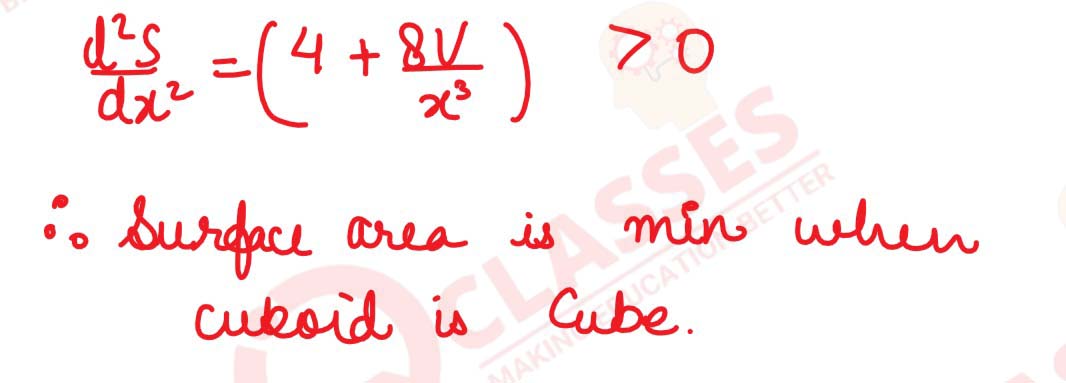 d²S/dx² = (4 + 8V/x³) > 0
∴ Surface area is min when
cuboid is Cube.
CLASSES
MAKING EDUCATION BETTER